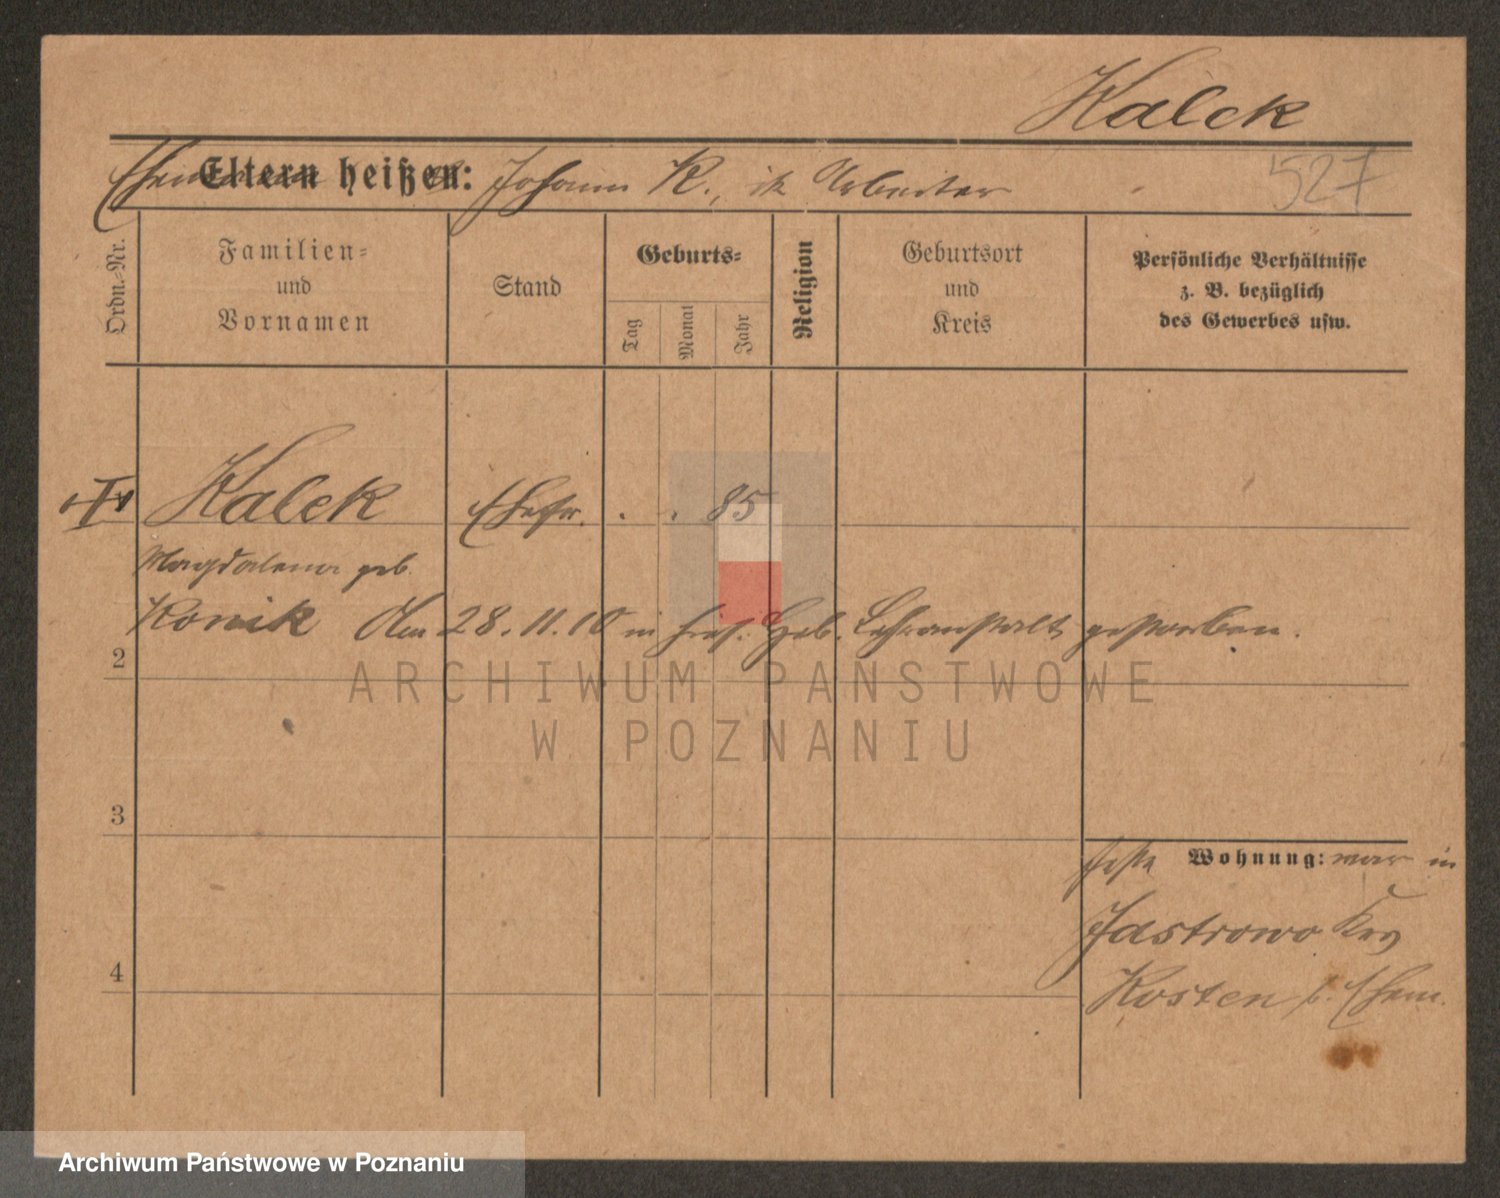 Kalek
527
Ehemann Eltern heißen: Johann K., ist Arbeiter
Ordn.-Nr.
Familien-
und
Vornamen
Stand
Geburts-
Tag
Monat
Jahr
Religion
Geburtsort
und
Kreis
Persönliche Verhältnisse
z. B. bezüglich
des Gewerbes usw.
Kalek Ehefr. . . 85
Magdalena geb.
Konik Am 28.11.10 in hies. Heb. Lehranstalt gestorben.
2
ARCHIWUM PAŃSTWOWE
W POZNANIU
3
Wohnung: war in
Jastrowo Krs
4
Kosten b. Ehem.
Archiwum Państwowe w Poznaniu